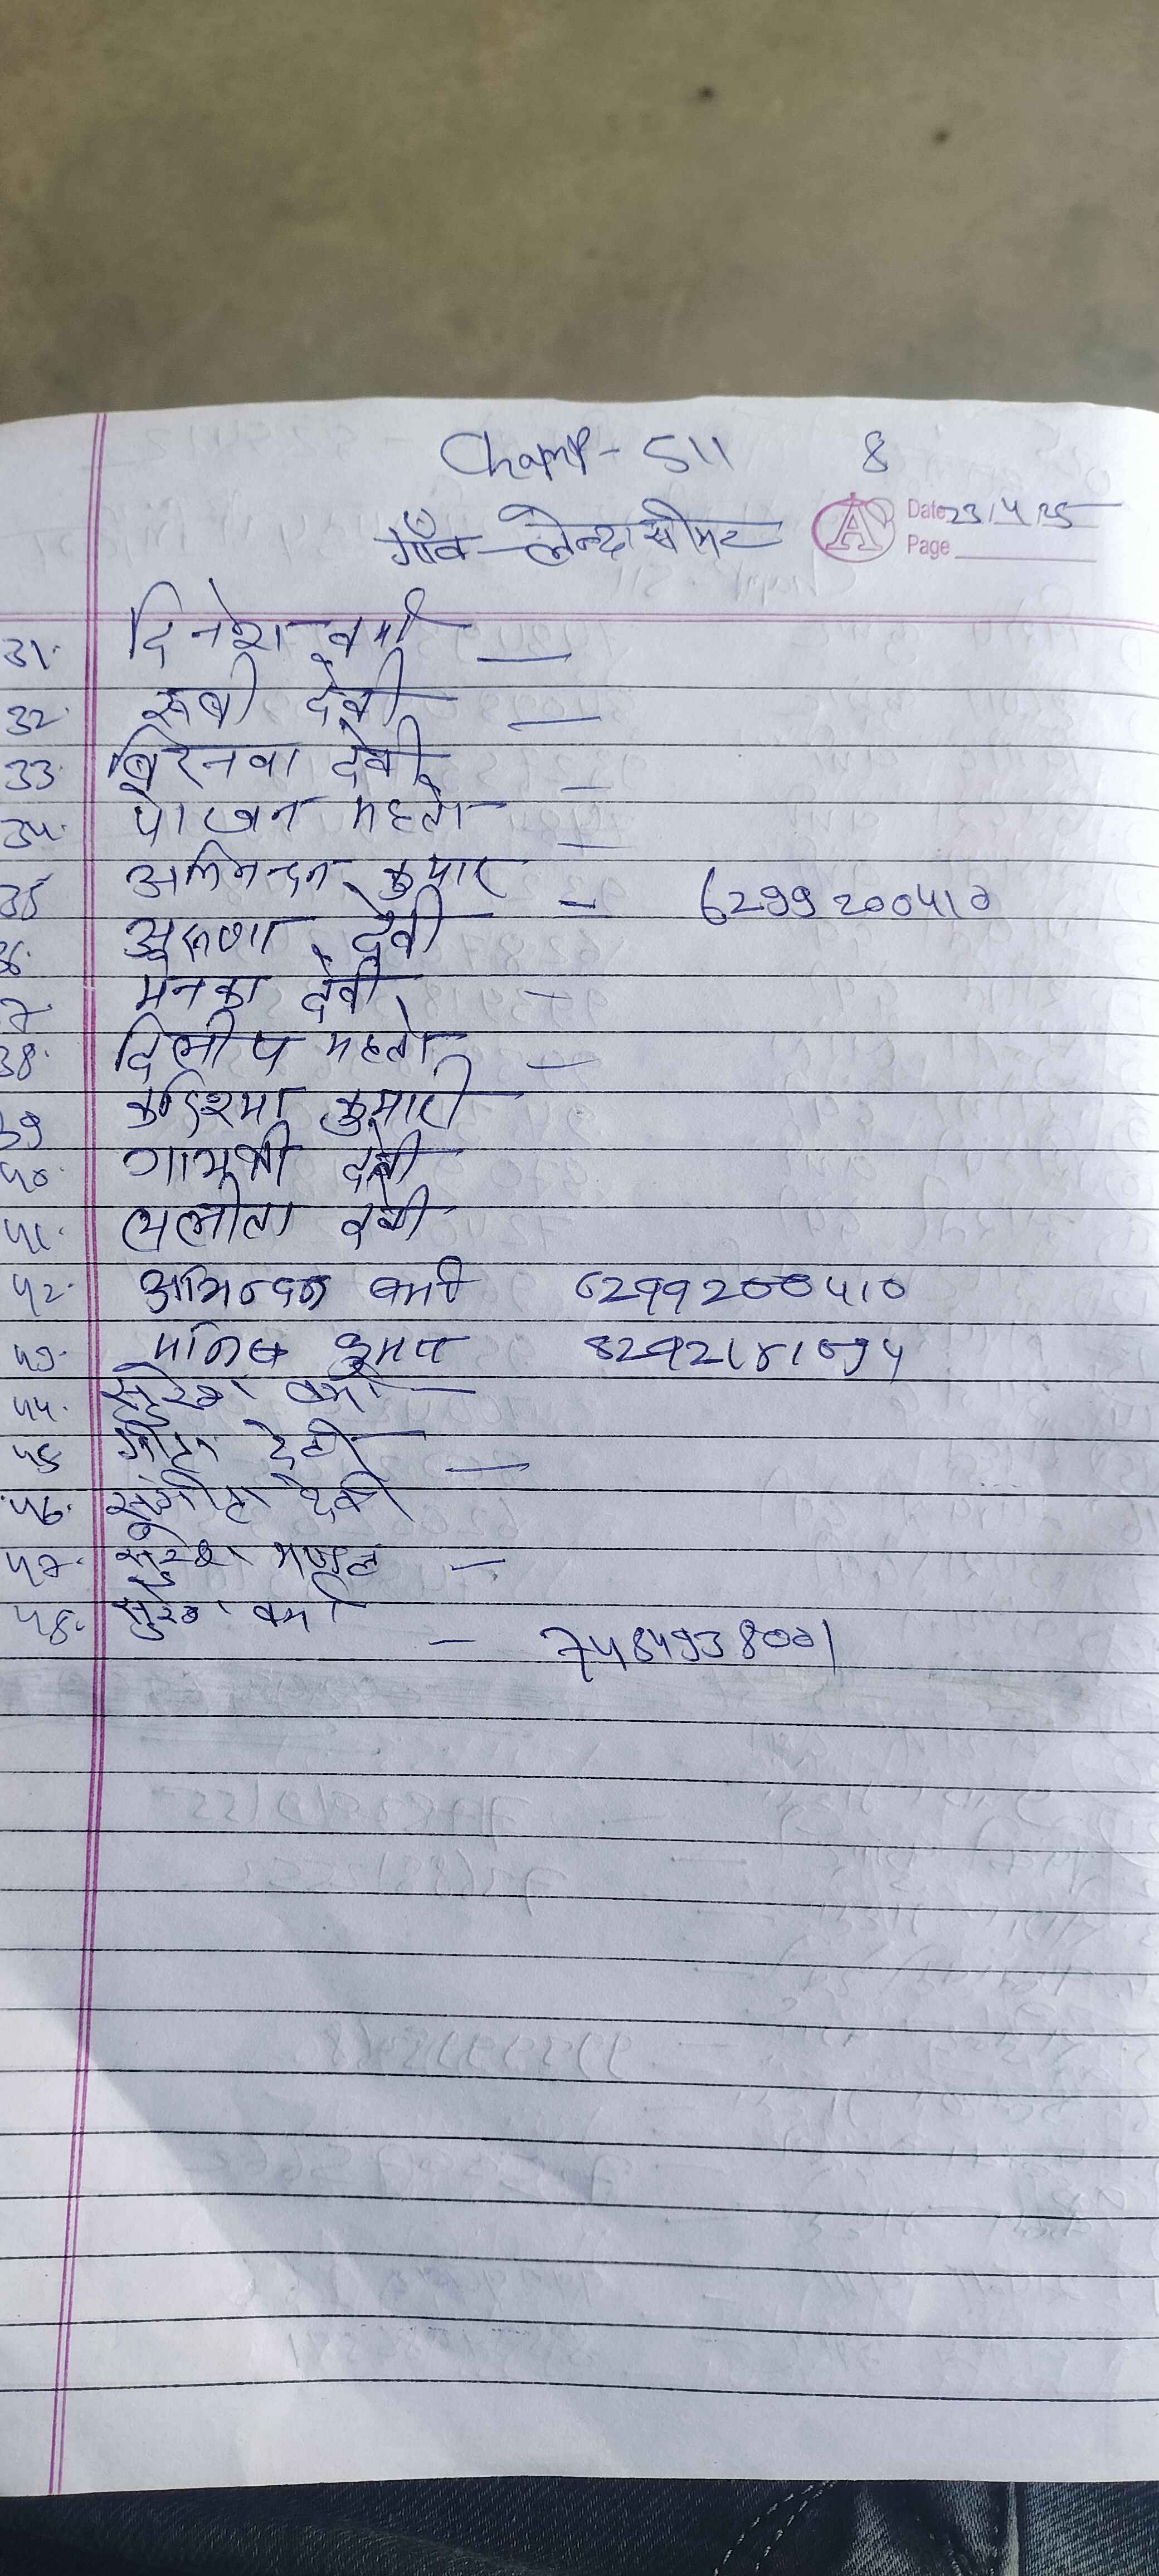 Champ - 511 8
गाँव - लेन्दा सीमर
Date 23/4/25
Page
31. दिनेश वर्मा —
32. रूबी देवी —
33. बिरनवा देवी —
34. महतो —
35 अभिनन्दन कुमार — 6299200410
36. अरुणा देवी
37 मेनका देवी —
38. दिलीप महतो —
39 करिश्मा कुमारी
40. गायत्री देवी
41. ललीता देवी
42. अभिनन्दन वर्मा 6299200410
43. कुमार
44. सुरेश वर्मा —
45 गीता देवी —
46. संगीता देवी
47. सुरेश मण्डल —
48. सुरेश वर्मा — 7484938001